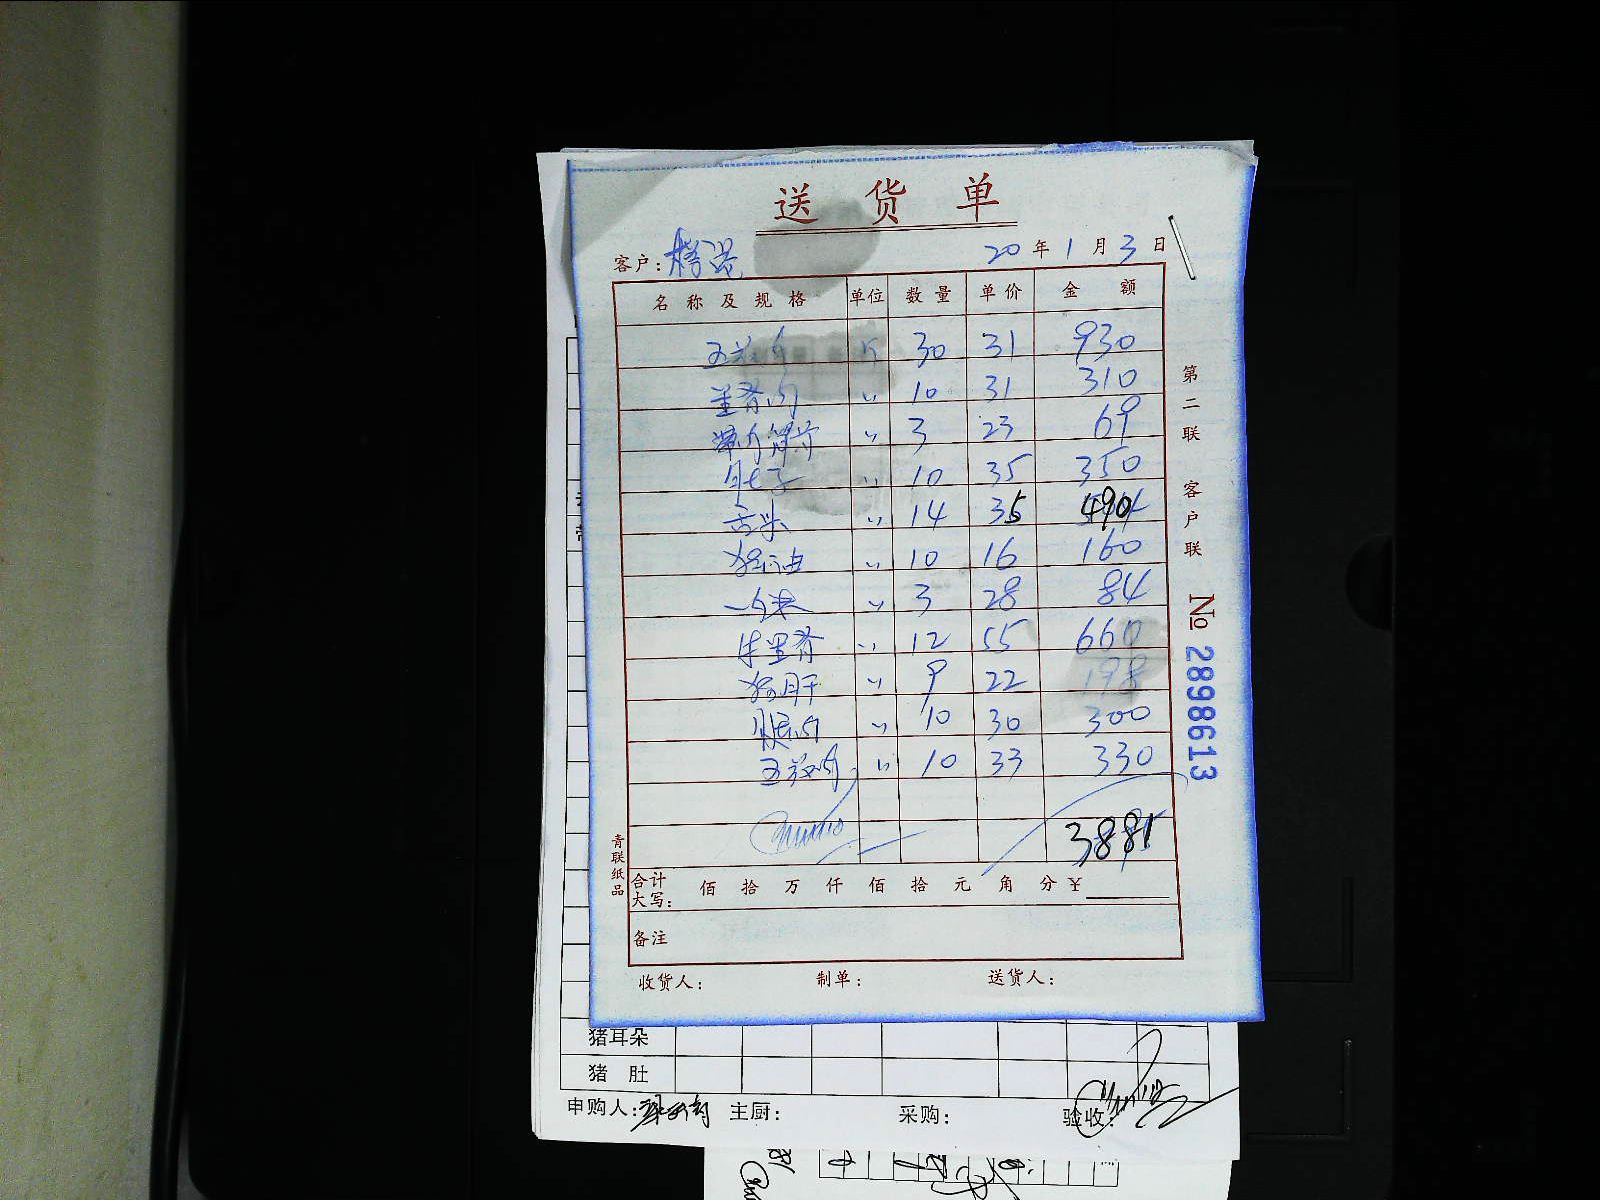 送货单
客户: 20年1月3日
名称及规格 单位 数量 单价 金额
五花肉 斤 30 31 930
里脊肉 〃 10 31 310
〃 3 23 69
肚子 〃 10 35 350
舌头 〃 14 35 490
猪油 〃 10 16 160
〃 3 28 84
牛里脊 〃 12 55 660
猪肝 〃 9 22 198
腿肉 〃 10 30 300
五花肉 〃 10 33 330
3881
合计大写: 佰拾万仟佰拾元角分¥
备注
收货人: 制单: 送货人:
第二联 客户联
№ 2898613
青联纸品
猪耳朵
猪肚
申购人: 主厨: 采购: 验收: